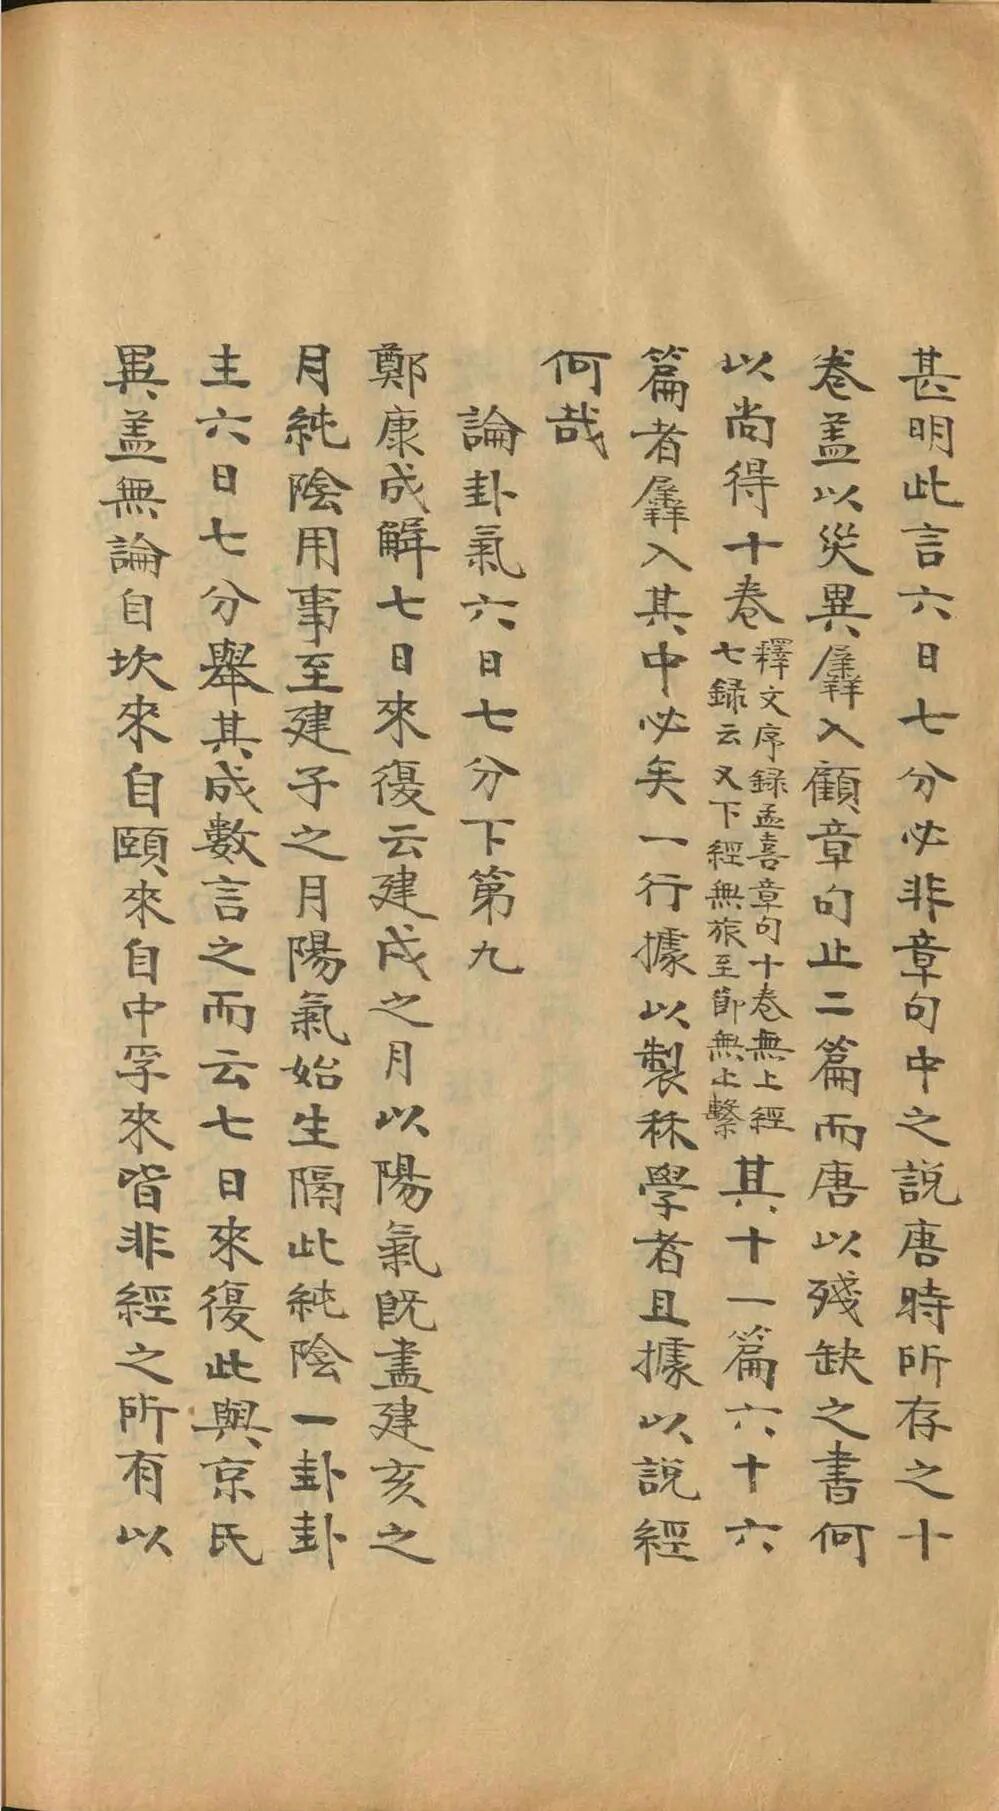 甚明此言六日七分必非章句中之說唐時所存之十
卷盖以災異羼入顧章句止二篇而唐以殘缺之書何
以尚得十卷釋文序録孟喜章句十卷無上經七録云又下經無旅至節無上繫其十一篇六十六
篇者羼入其中必矣一行據以製秝學者且據以說經
何哉
論卦氣六日七分下第九
鄭康成解七日來復云建戌之月以陽氣旣盡建亥之
月純陰用事至建子之月陽氣始生隔此純陰一卦卦
主六日七分舉其成數言之而云七日來復此與京氏
異盖無論自坎來自頤來自中孚來皆非經之所有以